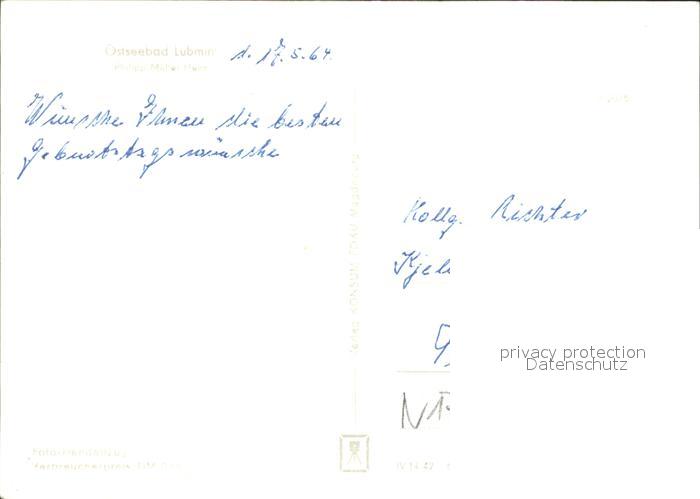 Ostseebad Lubmin d. 17.5.64.
Philipp-Müller-Heim
Wünsche Ihnen die besten
Geburtstagswünsche
Verlag KONSUM FOKU Magdeburg
Kollg. Richter
Kjel
privacy protection
Datenschutz
Foto-Handabzug
Verbraucherpreis DM
IV 14 42